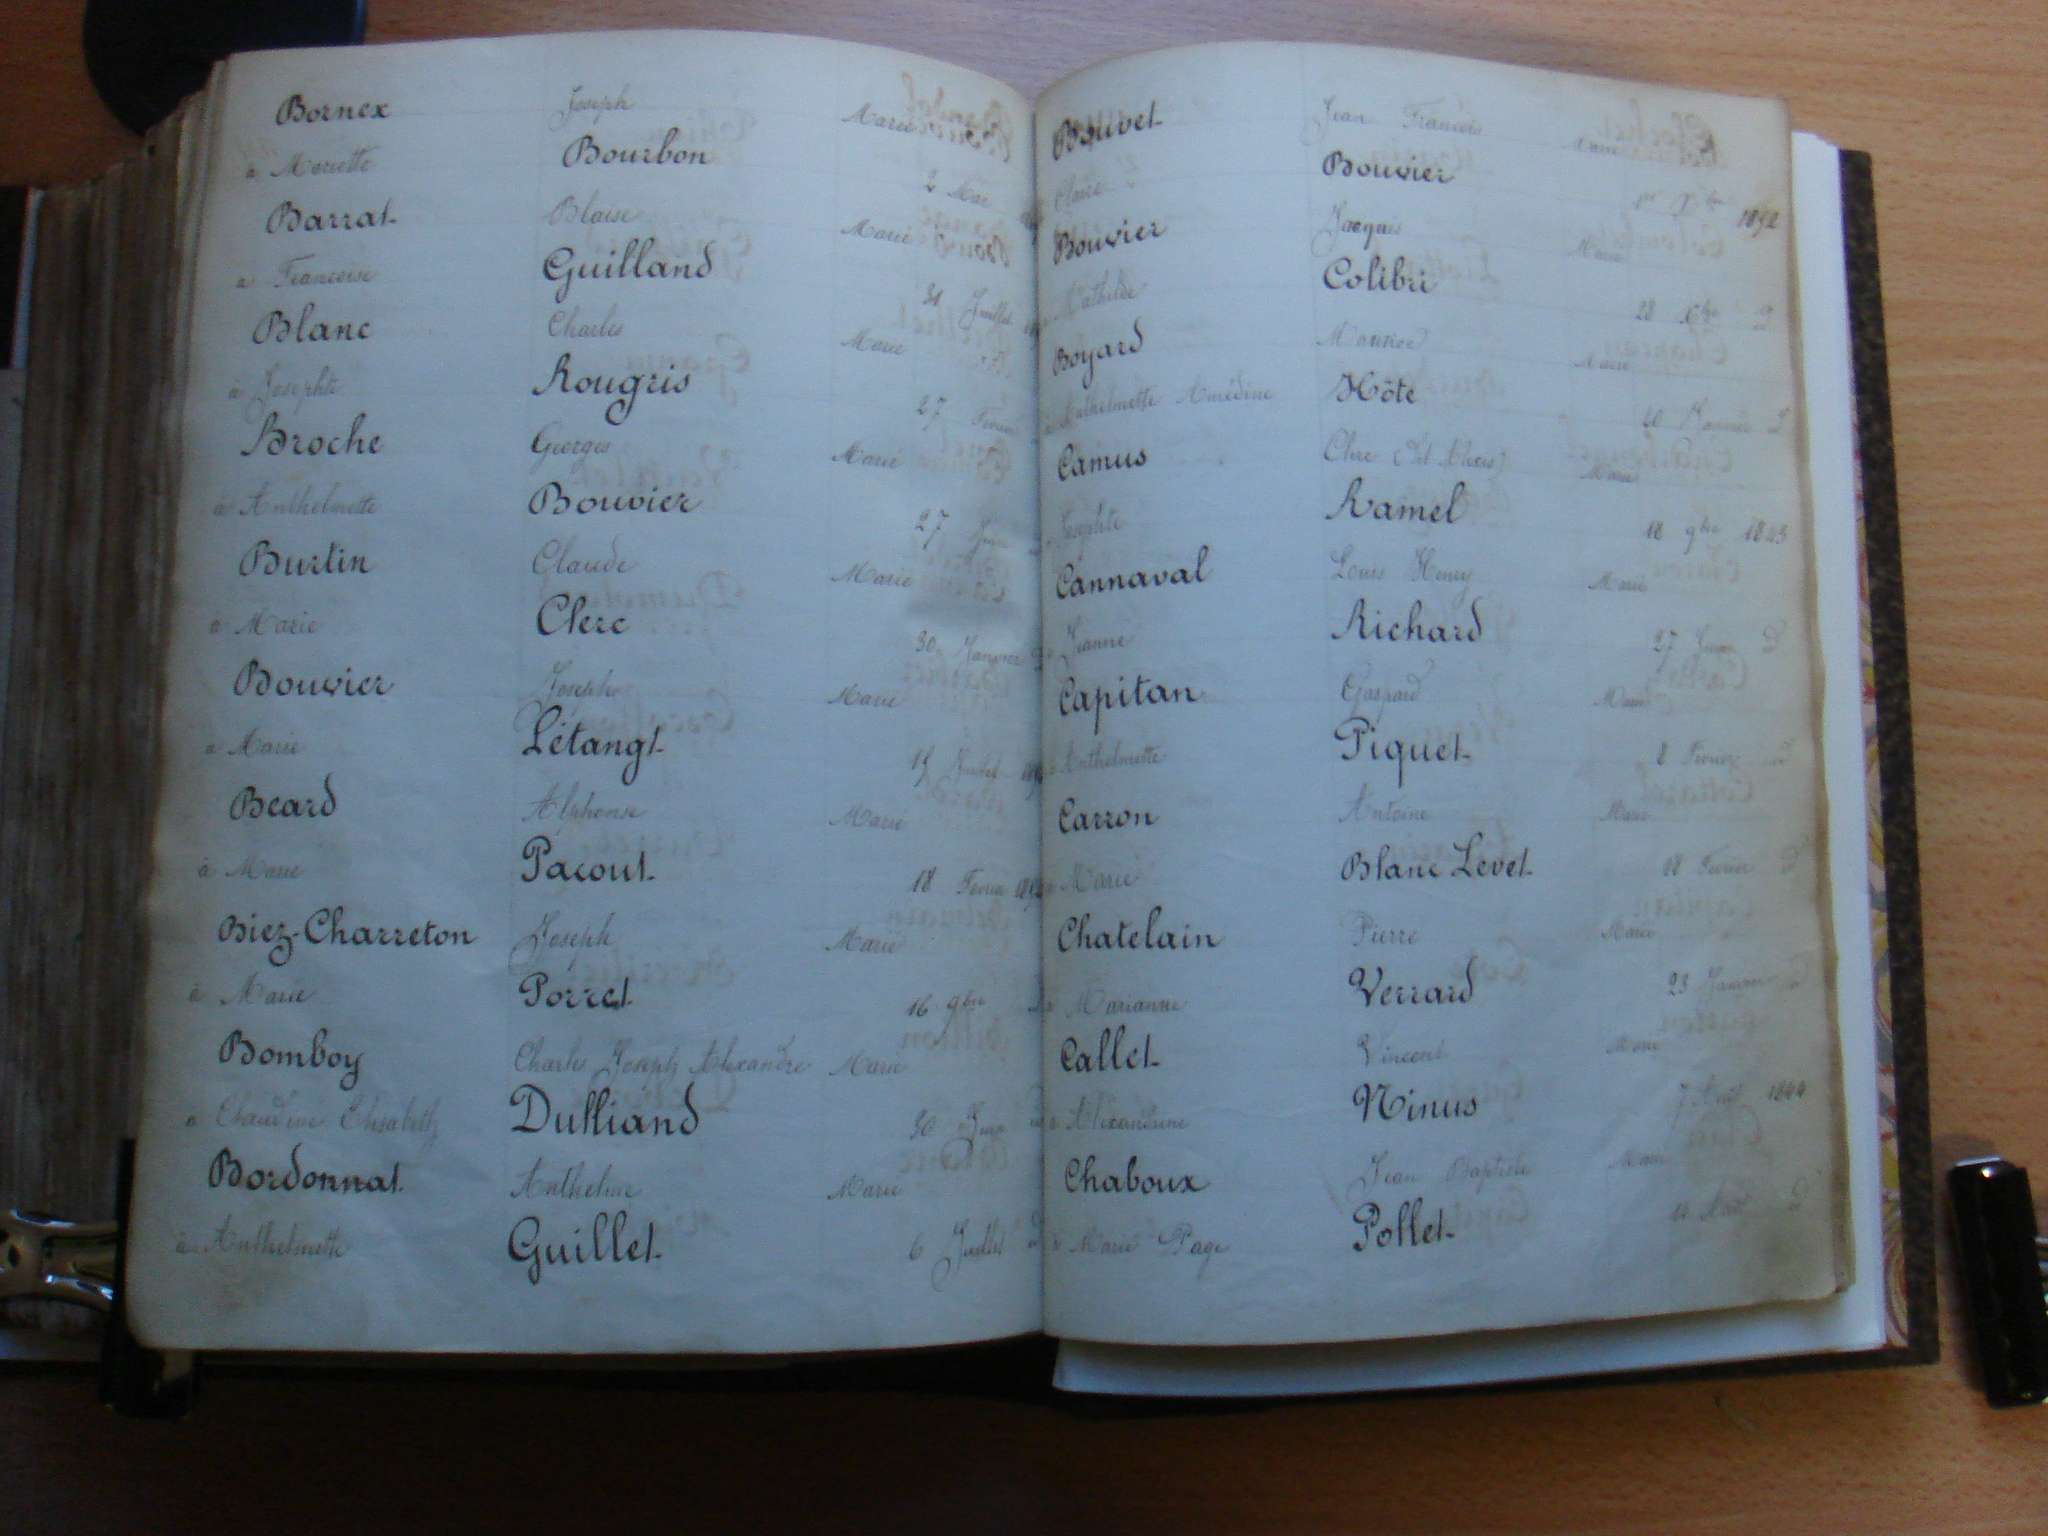 Bornex Joseph Marié
à Mariette Bourbon 2 Mai
Barrat Blaise Marié
à Francoise Guilland 31 Juillet
Blanc Charles Marié
à Josephte Rougris 27 Février
Broche Georges Marié
à Anthelmette Bouvier 27
Burtin Claude Marié
à Marie Clerc 30 Janvier
Bouvier Joseph Marié
à Marie Létangt Juillet
Beard Alphonse Marié
à Marie Pacout 18 Février
Biez-Charreton Joseph Marié
à Marie Porret 16 9bre
Bomboy Charles Joseph Alexandre Marié
à Claudine Elisabeth Dulliand 30 Juin
Bordonnat Anthelme Marié
à Anthelmette Guillet 6 Juillet
Bouvet Jean Francois Marié
Claire Bouvier 1er Xbre
Bouvier Jacques Marié
Mathilde Colibri 28 Xbre D
Boyard Marié
à Anthelmette Amédine Hôte Janvier D
Camus Clerc Marié
Josephte Ramel 18 9bre 1843
Cannaval Louis Henry Marié
Jeanne Richard 27 Juin D
Capitan Gaspard Marié
Anthelmette Piquet 8 Février D
Carron Antoine Marié
à Marie Blanc Levet 18 Février D
Chatelain Pierre Marié
à Marianne Verrard 23 Janvier D
Callet Vincent Marié
à Alexandrine Ninus 7 Août 1844
Chaboux Jean Baptiste Marié
à Marie Page Pollet D